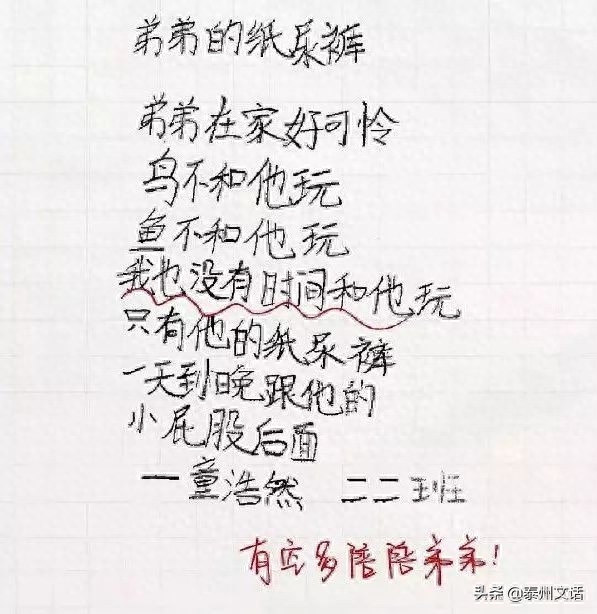 弟弟的纸尿裤
弟弟在家好可怜
鸟不和他玩
鱼不和他玩
我也没有时间和他玩
只有他的纸尿裤
一天到晚跟他的
小屁股后面
一童浩然 二二班
有空多陪陪弟弟!
头条@泰州文话